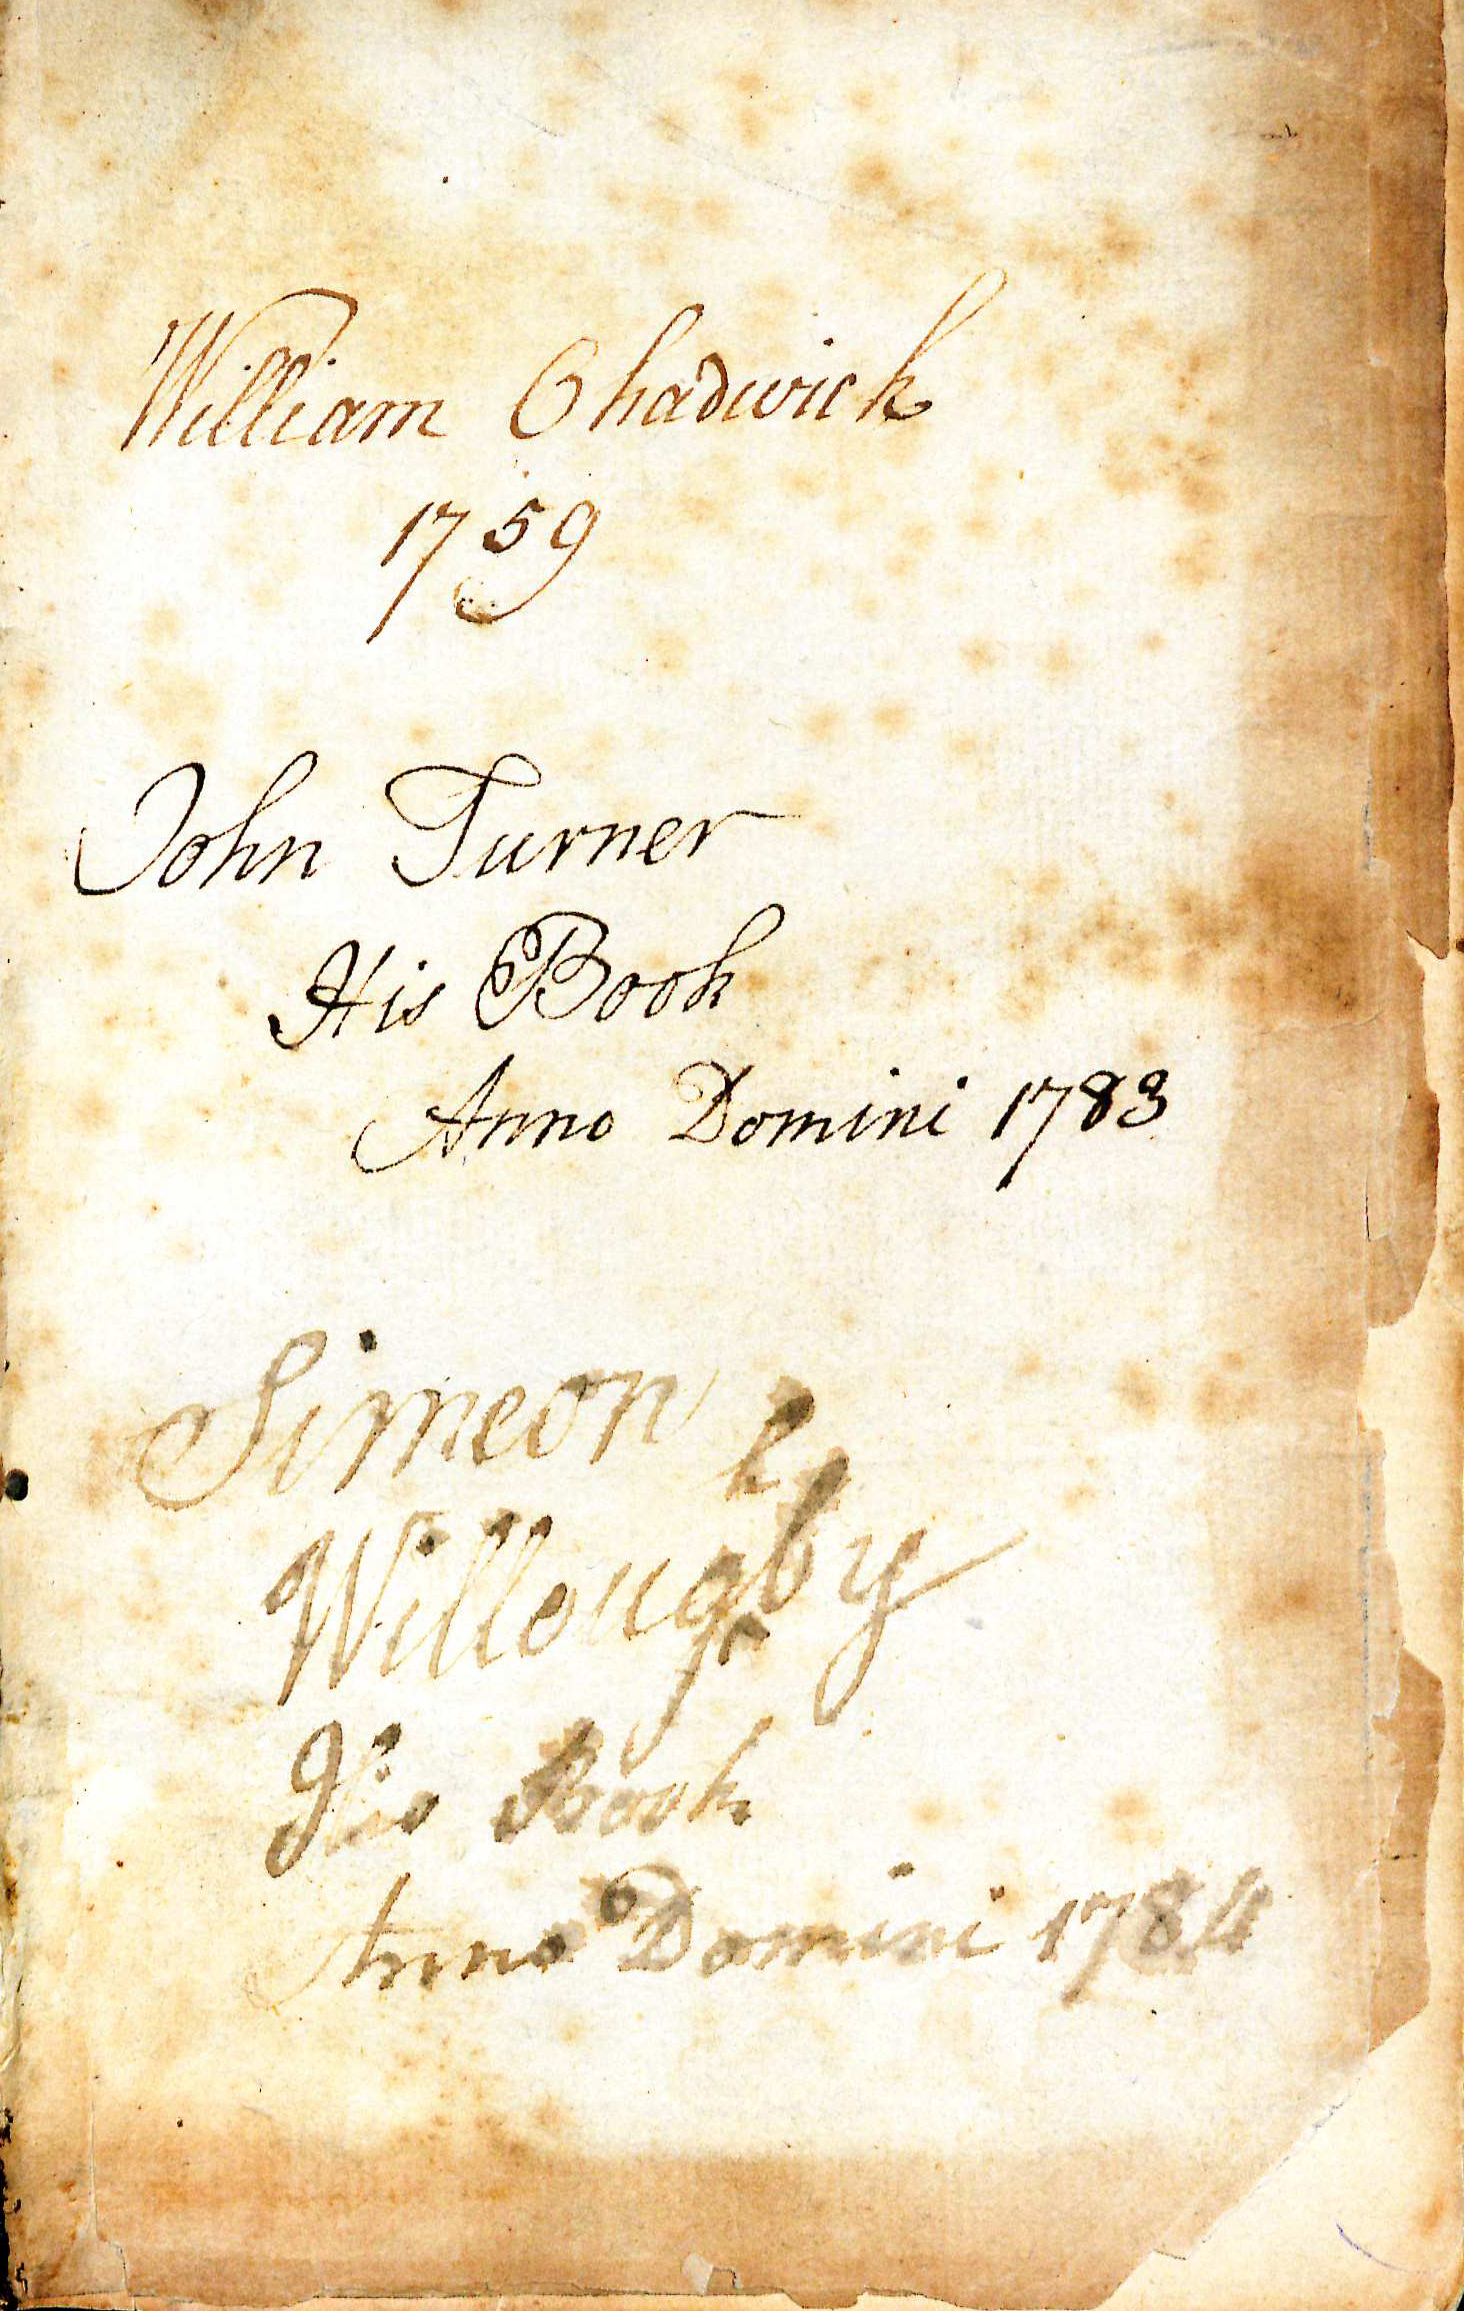 William Chadwick
1759
John Turner
His Book
Anno Domini 1783
Simeon
Willoughby
His Book
Anno Domini 1784